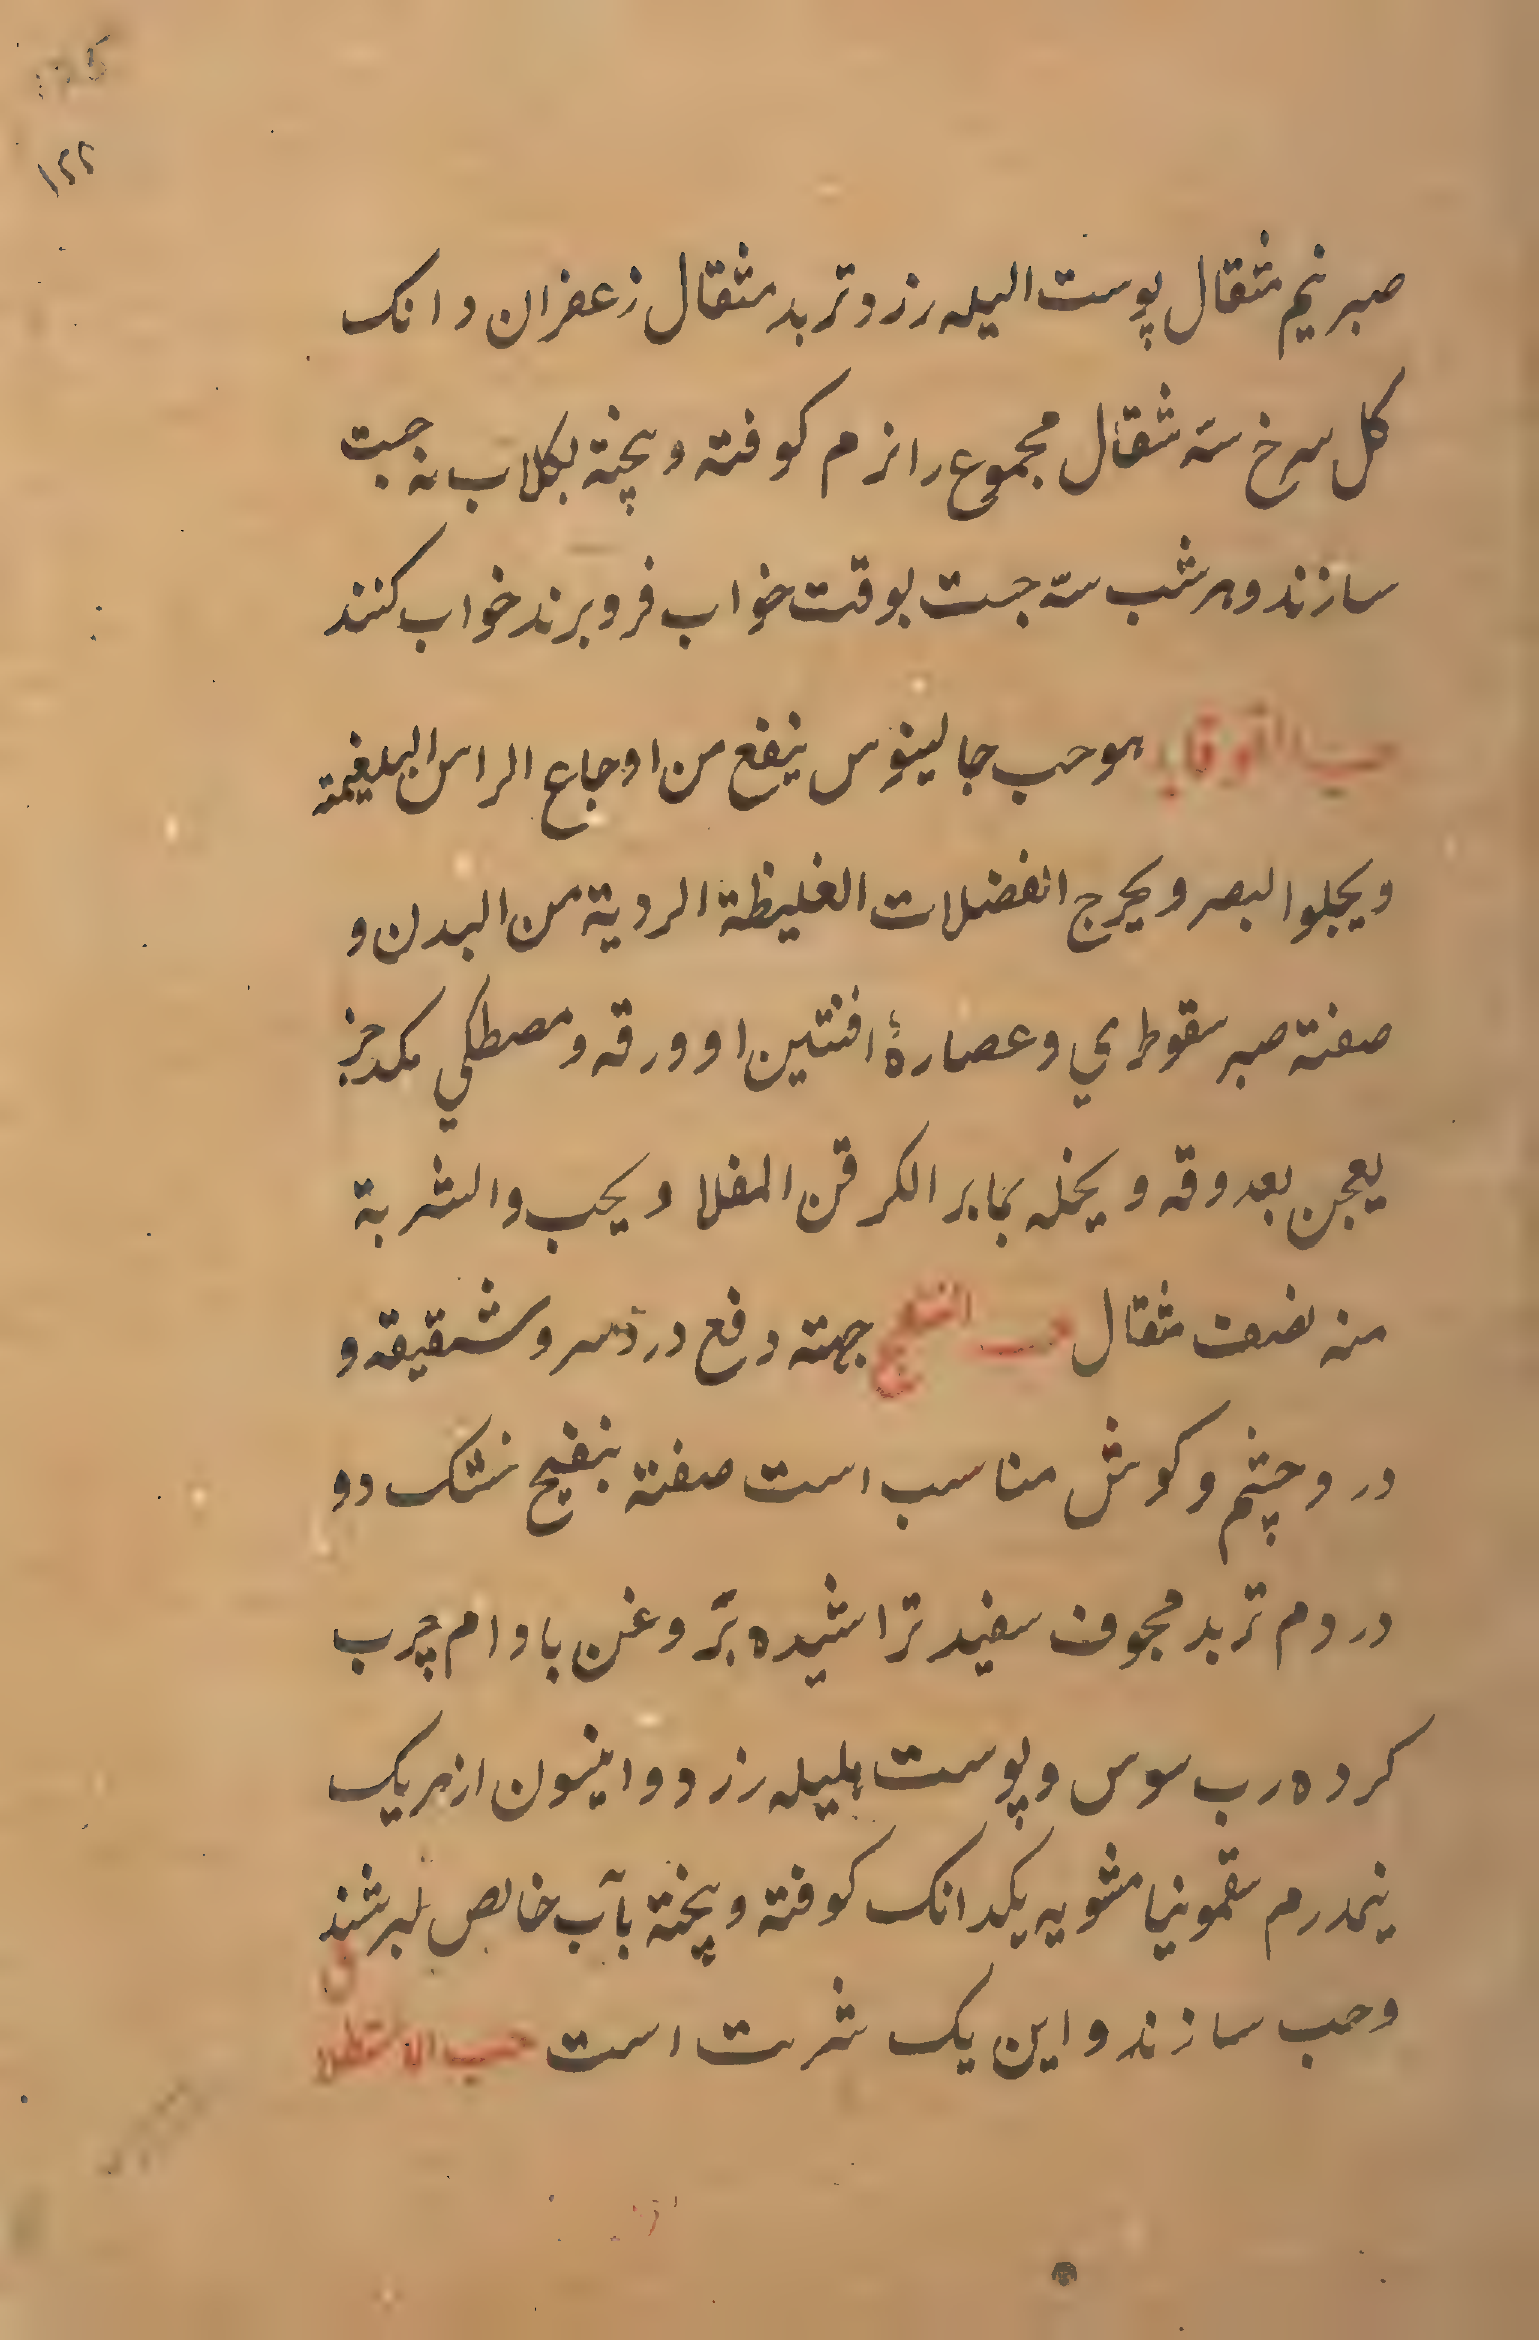 ۱۲۲
صبر نیم مثقال پوست الیله زرد و تربد مثقال زعفران دانک
کل سرخ سه مثقال مجموع را نرم کوفته و پخته بکلاب نه حبت
سازند و هر شب سه حبت بوقت خواب فرو برند خواب کنند
حب القوقایا هو حب جالینوس ینفع من اوجاع الراس البلغمیة
ویجلوا البصر و یخرج الفضلات الغلیظة الردیة من البدن و
صفته صبر سقوطري و عصارۀ افنتین او ورقه و مصطکي مکد جز
یعجن بعد دقه و یخله بما بر الکرفن المغلا و یحب والشربة
منه نصف مثقال حب البنفسج جهته دفع درد سر و شقیقه و
درد چشم و کوش مناسب است صفته بنفیج خشک دو
درم تربد مجوف سفید تراشیده بروغن بادام چرب
کرده رب سوس و پوست هلیله زرد و انیسون از هر یک
نیمدرم سقمونیا مشویه یکدانک کوفته و پخته بآب خالص بسرشند
و حب سازند و این یک شربت است حب الاسطلاق